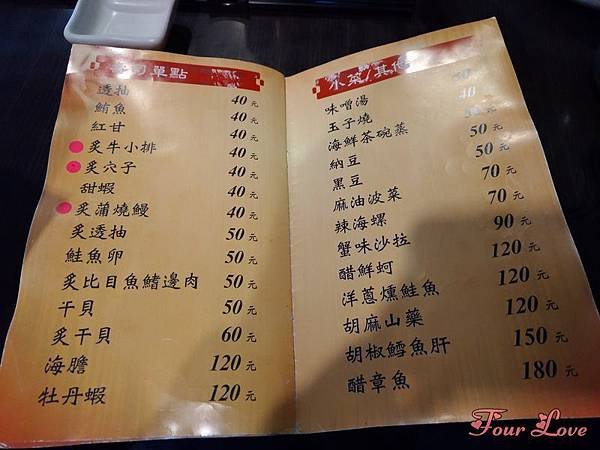 司單點
透抽 40元
鮪魚 40元
紅甘 40元
炙牛小排 40元
炙穴子 40元
甜蝦 40元
炙蒲燒鰻 40元
炙透抽 50元
鮭魚卵 50元
炙比目魚鰭邊肉 50元
干貝 50元
炙干貝 60元
海膽 120元
牡丹蝦 120元
小菜/其他
味噌湯
玉子燒 40元
海鮮茶碗蒸
納豆 50元
黑豆 50元
麻油波菜 70元
辣海螺 70元
蟹味沙拉 90元
醋鮮蚵 120元
洋蔥燻鮭魚 120元
胡麻山藥 120元
胡椒鱈魚肝 150元
醋章魚 180元
Four Love